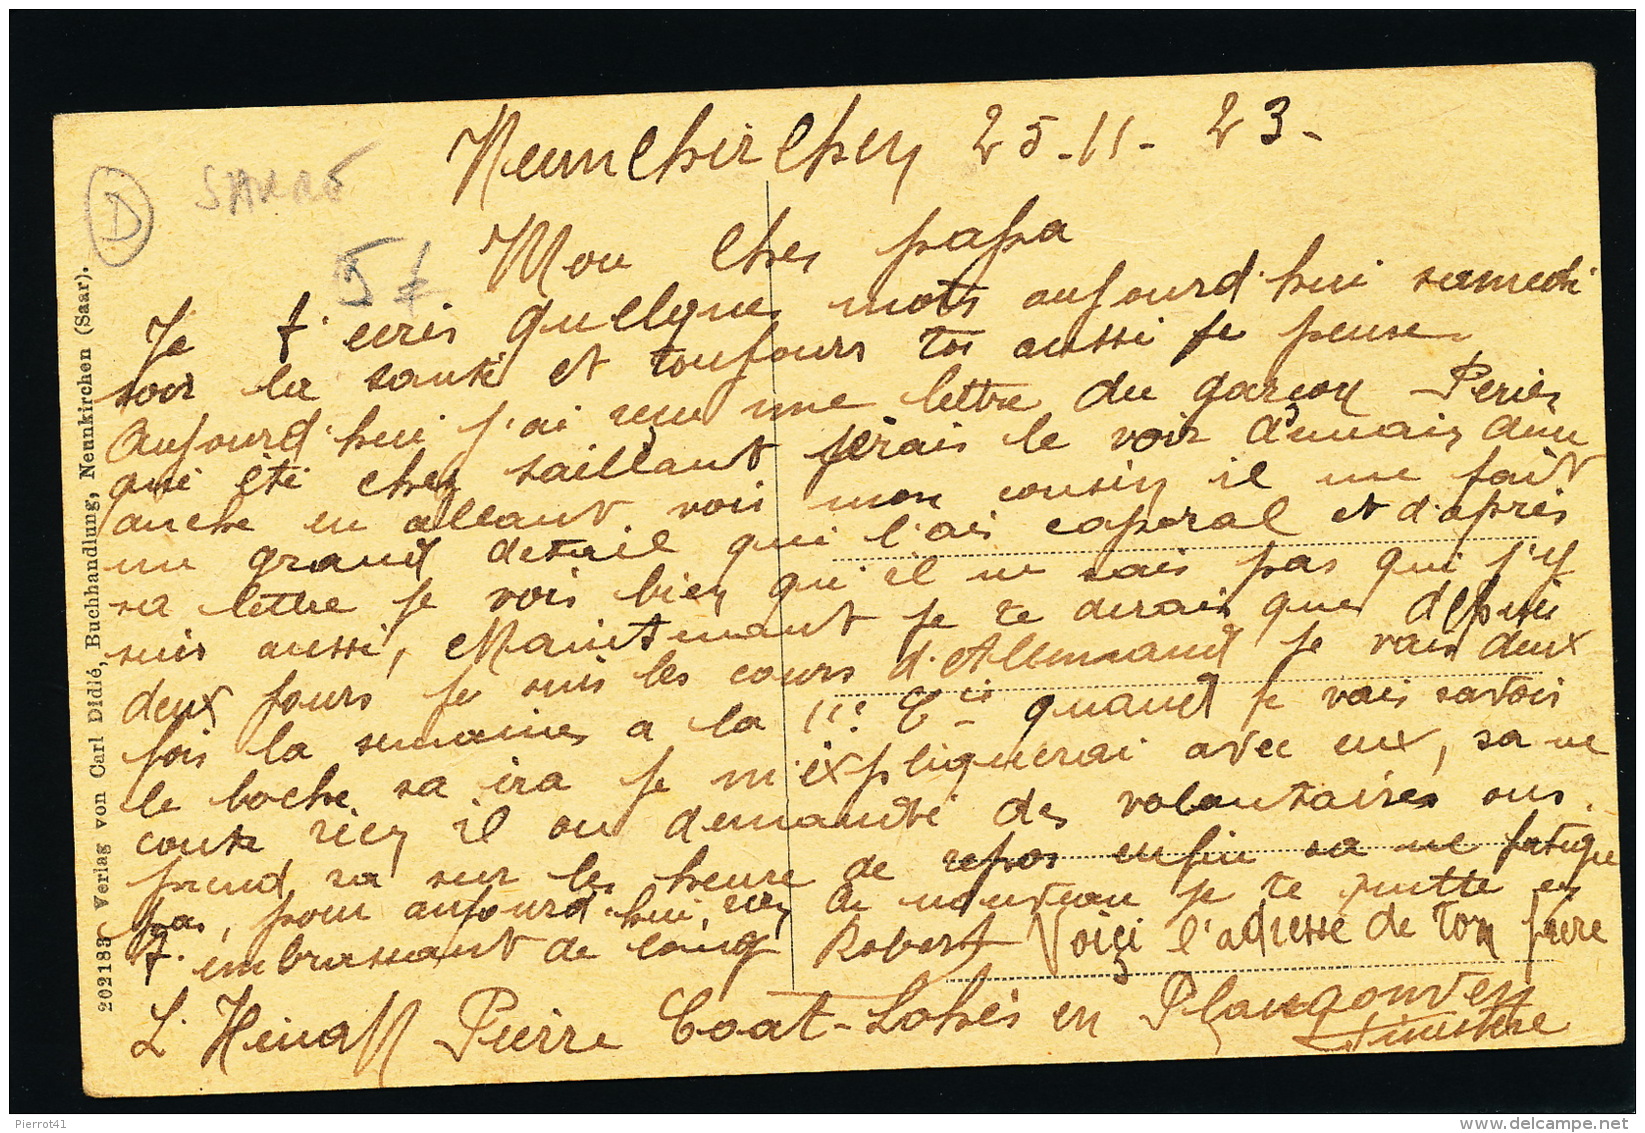 Neunchirchen 25-11-23-
D
SARRE
5f
Mon cher papa
Je t'ecris quelques mots aujourd'hui samedi
soir la santé et toujours toi aussi je pense.
Aujourd'hui j'ai reçu une lettre du garçon Perien
qui été chez saillant jèrais le voir
anche en allant voir mon cousin il me fait
un grand detail qui l'ai caporal et d'après
sa lettre je vois bien qu'il ne sais pas qui j'y
suis aussi, Maintenant je te dirais que depuis
deux jours je suis les cours d'Allemand je vais deux
fois la semaines a la 11e Cie quand je vais savoir
le boche sa ira je m'expliquerai avec eux, sa ne
coute rien il on demandé des volontaires ous.
prend sa sur les heure de repos enfin sa me fatigue
pas, pour aujourd'hui, rien de nouveau je te quitte en
t'embrassant de loing Robert Voiçi l'adresse de ton frere
L'Hénaff Pierre Coat-Lohès en Plougonven
Finistère
202183 Verlag von Carl Didié, Buchhandlung, Neunkirchen (Saar).
Pierrot41
delcampe.net